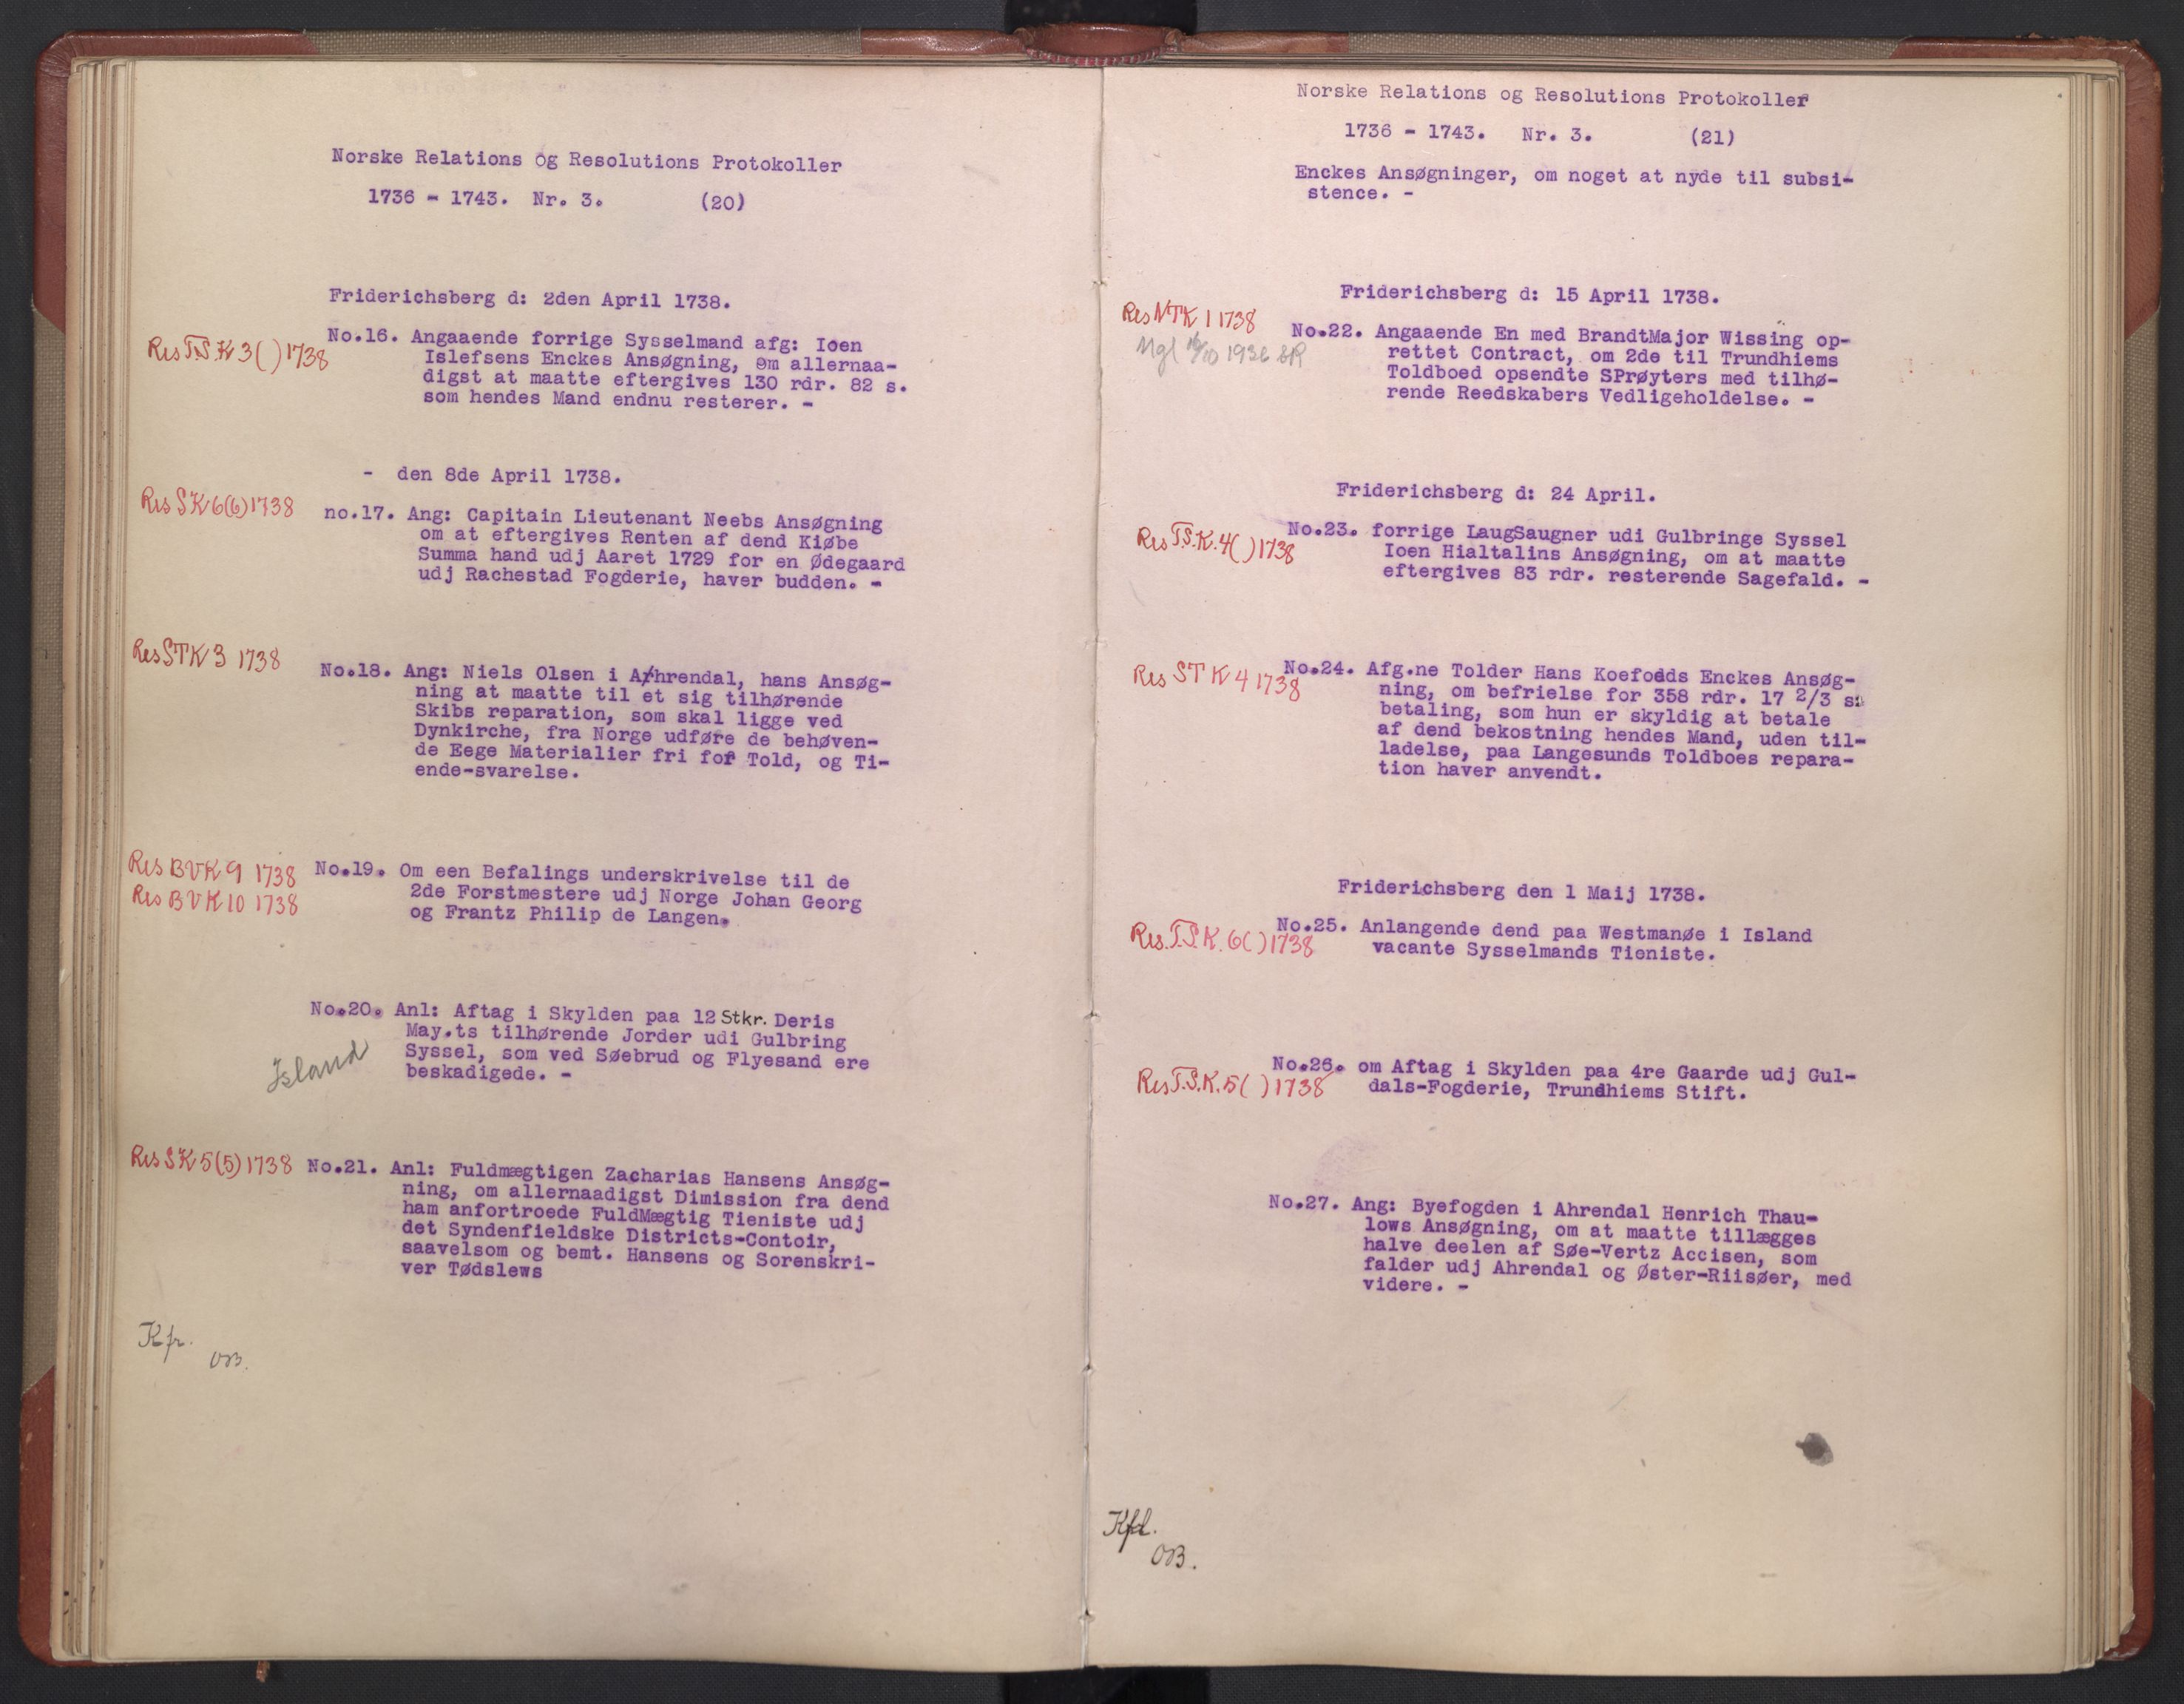 Norske Relations og Resolutions Protokoller
1736 - 1743. Nr. 3. (20)
Friderichsberg d: 2den April 1738.
Res T.S.K 3( ) 1738
No.16. Angaaende forrige Sysselmand afg: Ioen
Islefsens Enckes Ansøgning, om allernaa-
digst at maatte eftergives 130 rdr. 82 s.
som hendes Mand endnu resterer. -
- den 8de April 1738.
Res SK 6(6) 1738
no.17. Ang: Capitain Lieutenant Neebs Ansøgning
om at eftergives Renten af dend Kiøbe
Summa hand udj Aaret 1729 for en Ødegaard
udj Rachestad Fogderie, haver budden. -
Res STK 3 1738
No.18. Ang: Niels Olsen i Ahrendal, hans Ansøg-
ning at maatte til et sig tilhørende
Skibs reparation, som skal ligge ved
Dynkirche, fra Norge udføre de behøven-
de Eege Materialier fri for Told, og Ti-
ende-svarelse.
Res BVK 9 1738
Res BVK 10 1738
No.19. Om een Befalings underskrivelse til de
2de Forstmestere udj Norge Johan Georg
og Frantz Philip de Langen.
No.20. Anl: Aftag i Skylden paa 12 Stkr. Deris
May.ts tilhørende Jorder udi Gulbring
Syssel, som ved Søebrud og Flyesand ere
beskadigede. -
Island
Res SK 5(5) 1738
No.21. Anl: Fuldmægtigen Zacharias Hansens Ansøg-
ning, om allernaadigst Dimission fra dend
ham anfortroede FuldMægtig Tieniste udj
det Syndenfieldske Districts-Contoir,
saavelsom og bemt. Hansens og Sorenskri-
ver Tødslews
Kfr.
OB.
Norske Relations og Resolutions Protokoller
1736 - 1743. Nr. 3. (21)
Enckes Ansøgninger, om noget at nyde til subsi-
stence. -
Friderichsberg d: 15 April 1738.
Res NTK 1 1738
Mgl 16/10 1936
No.22. Angaaende En med BrandtMajor Wissing op-
rettet Contract, om 2de til Trundhiems
Toldboed opsendte SPrøyters med tilhø-
rende Reedskabers Vedligeholdelse. -
Friderichsberg d: 24 April.
Res T.S.K. 4( ) 1738
No.23. forrige LaugSaugner udi Gulbringe Syssel
Ioen Hialtalins Ansøgning, om at maatte
eftergives 83 rdr. resterende Sagefald. -
Res STK 4 1738
No.24. Afg.ne Tolder Hans Koefods Enckes Ansøg-
ning, om befrielse for 358 rdr. 17 2/3 s:
betaling, som hun er skyldig at betale
af dend bekostning hendes Mand, uden til-
ladelse, paa Langesunds Toldboes repara-
tion haver anvendt.
Friderichsberg den 1 Maij 1738.
Res. T.S.K. 6( ) 1738
No.25. Anlangende dend paa Westmanøe i Island
vacante Sysselmands Tieniste.
Res T.S.K. 5( ) 1738
No.26. om Aftag i Skylden paa 4re Gaarde udj Gul-
dals-Fogderie, Trundhiems Stift.
No.27. Ang: Byefogden i Ahrendal Henrich Thau-
lows Ansøgning, om at maatte tillægges
halve deelen af Søe-Vertz Accisen, som
falder udj Ahrendal og Øster-Riisøer, med
videre. -
Kfd.
OB.